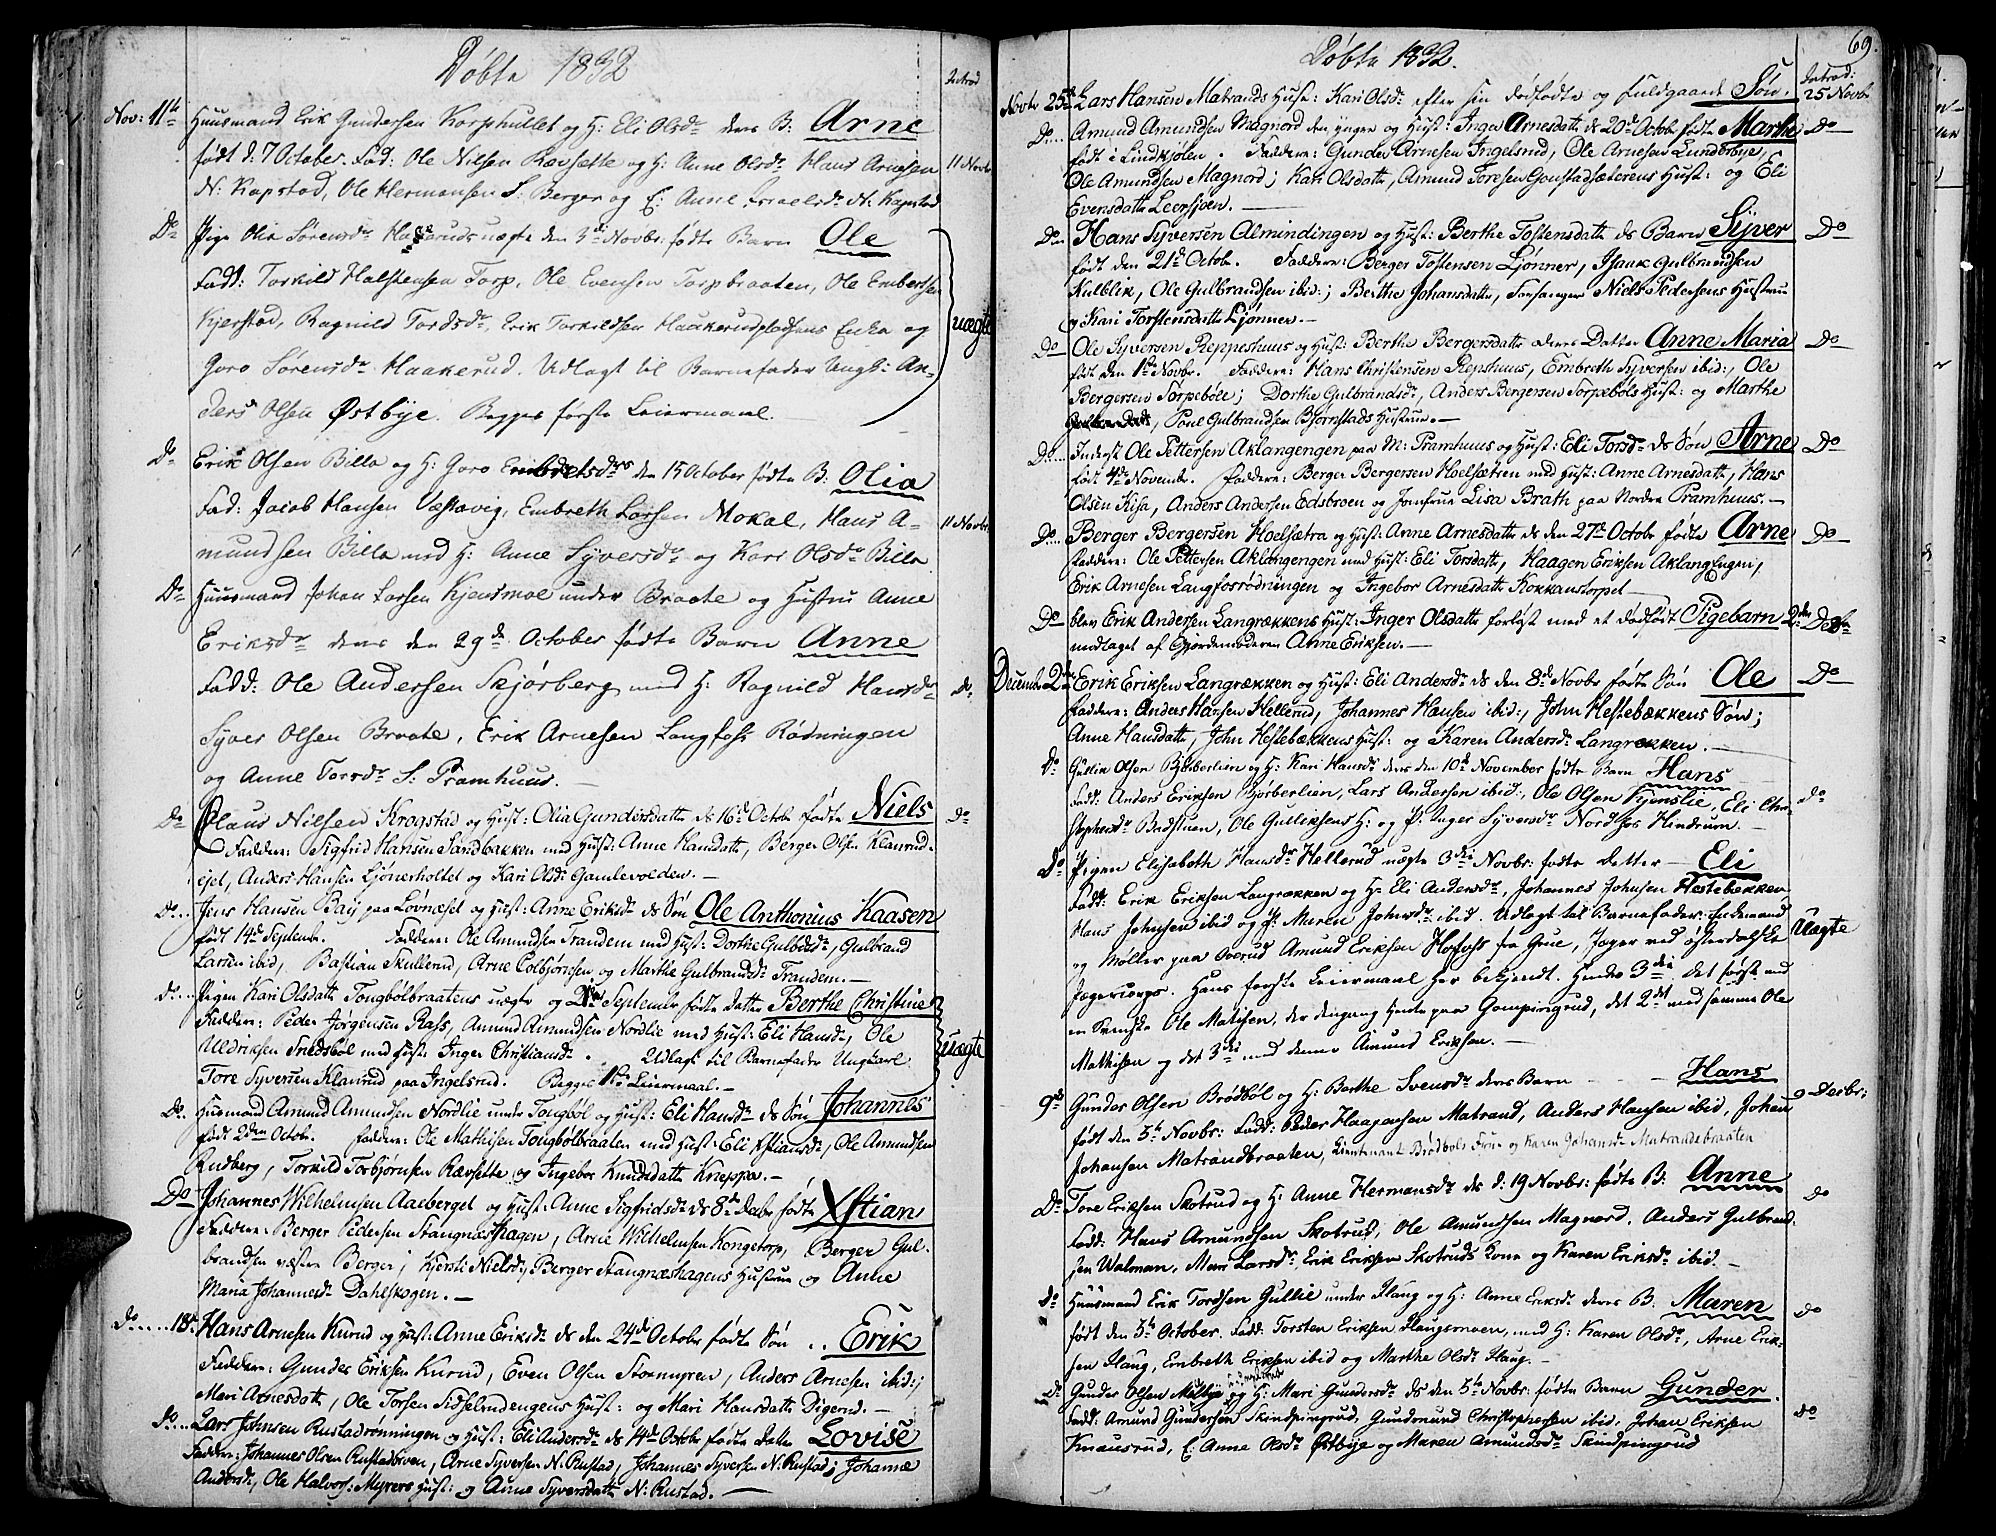 Döbte 1832
Introd
Nov: 11te Huusmand Erik Gundersen Korphullet og H: Eli Olsdr deres B: Arne
født d. 7 October. Fad: Ole Nilsen Rævsette og H: Anne Olsdr Hans Arnesen 11 Novbr
N: Kapstad, Ole Hermansen S. Berger og E: Anne Israelsdr N: Kapstad
Do Pige Olia Sørensdr Haakeruds uægte den 3di Novbr: fødte Barn Ole
Fadd: Torkild Halstensen Torp, Ole Evensen Torpbraaten, Ole Embretsen
Kjerstad, Ragnild Tordsdr, Erik Torkildsen Haakerudpladsens Enke og uægte
Goro Sørensdr Haakerud. Udlagt til Barnefader Ungk: An-
ders Olsen Østbye. Begges første Leiermaal.
Do Erik Olsen Billa og H: Goro Embretsdrs den 15 October fødte B: Olia
Fad: Jacob Hansen Vestavig, Embreth Larsen Mokal, Hans A- 11 Novbr
mundsen Billa med H: Anne Syversdr og Kari Olsdr Billa
Do Huusmand Johan Larsen Kjensmoe under Braate og Hustru Anne
Eriksdr deres den 29de October fødte Barn Anne
Fadd: Ole Andersen Skjørberg med H: Ragnild Hansdr Do
Syver Olsen Braate, Erik Arnesen Langfoss Rødningen
og Anne Torsdr S: Pramhuus.
Do Claus Nilsen Krogstad og Hust: Olia Gundersdatter ds 16de Octobr fødte Niels Do
Faddere: Sigfrid Hansen Sandbakken med Hust: Anne Hansdatter, Berger Olsen Klanrud-
ejet, Anders Hansen Ljønerholtet og Kari Olsdr Gamlevolden.
Do Jens Hansen Baij paa Løvnæset og Hust: Anne Eriksdr ds Søn Ole Anthonius Kaasen
født 14de Septembr. Faddere: Ole Amundsen Trandem med Hust: Dorthe Gulbrdsdr, Gulbrand
Larsen ibid, Bastian Skullerud, Arne Colbjørnsen og Marthe Gulbrandsdr Trandem.
Do Pigen Kari Olsdatter Tongbölbraatens uægte og Septembr fødte Datter Berthe Christine
Faddere: Peder Jørgensen Rass, Amund Amundsen Nordlie med Hust: Eli Hansdr, Ole uægte
Uldriksen Snedsböl med Hustr Inger Christiansdr. Udlagt til Barnefader Ungkarl
Tore Syversen Klanrud paa Ingelsrud. Begges 1ste Leiermaal.
Do Husmand Amund Amundsen Nordlie under Tongböl og Hust: Eli Hansdr ds Søn Johannes
født 2den Octobr. Faddere: Ole Mathisen Tongbölbraaten med Hust: Eli Xstiansdr, Ole Amundsen
Rudberg, Torkild Torbjørnsen Rævsette og Ingebor Knudsdatter Kneppa.
Do Johannes Wilhelmsen Aaeberget og Hust: Anne Sigfridsdr ds 8de Octbr fødte Xstian
Faddere: Berger Pedersen Stangnæshagen, Arne Wilhelmsen Kongetorp, Berger Gul-
brandsen vestre Berger; Kjersti Nielsdr, Berger Stangnæshagens Hustrue og Anne
Maria Johannesdr Dahlskogen.
Do 18de Hans Arnesen Kurud og Hust: Anne Eriksdr ds den 24de Octobr fødte Søn .. Erik
Faddere: Gunder Eriksen Kurud, Even Olsen Stormyren, Anders Arnesen ibid:;
Mari Arnesdatter, Ole Torsen Sidselrudengens Hust: og Mari Hansdatter Digerud.
Do Lars Johnsen Rustadrønningen og Hust: Eli Andersdr ds 14de Octobr fødte Datter Lovise
Faddere: Johannes Olsen Rustadstuen, Arne Syversen N. Rustad, Johannes Syversen N. Rustad; Johanne
Andersdr, Ole Halvors: Myrers Hust: og Anne Syversdatter N: Rustad.
Döbte 1832. 69.
Introd:
Novbr 25de Lars Hansen Matrands Hust: Kari Olsdr efter sin dødfødte og fuldgaaede Søn. 25 Novbr
Do Amund Amundsen Magnord den yngre og Hust: Inger Arnesdatter ds 20de Octobr fødte Marthe Do
født i Lindkjølen. Faddere: Gunder Arnesen Ingelsrud, Ole Arnesen Lunderbye,
Ole Amundsen Magnord; Kari Olsdatter, Amund Toresen Gonstadsæterens Hust: og Eli
Evensdatter Leersjøen.
Do Hans Syversen Almindingen og Hust: Berthe Tostensdatter ds Barn Syver Do
født den 21de Octobr. Faddere: Berger Tostensen Ljønner, Isaak Gulbrandsen
Kulblik, Ole Gulbrandsen ibid:; Berthe Johansdatter, Forsanger Niels Pedersens Hustrue
og Kari Torstensdatter Ljønner.
Do Ole Syversen Reppeshuus og Hust: Berthe Bergersdatter deres Datter Anne Maria Do
født den 1ste Novbr. Faddere: Hans Christensen Repshuus, Embreth Syversen ibid:, Ole
Bergersen Torpeböle; Dorthe Gulbrandsdr, Anders Bergersen Torpeböls Hust: og Marthe
, Poul Gulbrandsen Bjørnstads Hustrue.
Do Inderst Ole Pettersen Aklangengen paa M: Pramhuus og Hust: Eli Torsdr ds Søn Arne Do
født 4de Novembr. Faddere: Berger Bergersen Hoelsætren med Hust: Anne Arnesdatter, Hans
Olsen Kisa, Anders Andersen Edsbroen og Jomfrue Lisa Brath paa Nordre Pramhuus.
Do Berger Bergersen Hoelsætra og Hust: Anne Arnesdatter ds den 27de Octobr fødte Arne Do
Faddere: Ole Pettersen Aklangengen med Hust: Eli Torsdatter, Haagen Eriksen AklangEngen,
Erik Arnesen Langfosrødningen og Ingebor Arnesdatter Kokkanstorpet
Do blev Erik Andersen Langrækkens Hust: Inger Olsdatter forløst med et dødfødt Pigebarn 2den Decbr
modtaget af Gjordemoderen Anne Eriksen.
Decembr 2den Erik Eriksen Langrækken og Hust: Eli Andersdr ds den 8de Novbr fødte Søn Ole Do
Faddere: Anders Hansen Hellerud, Johannes Hansen ibid:, John Hestebækkens Søn;
Anne Hansdatter, John Hestebækkens Hust: og Karen Andersdr Langrækken.
Do Gullik Olsen Bjørberlien og H: Kari Hansdr deres den 10de November fødte Barn Hans
Fadd: Anders Eriksen Bjørberlien, Lars Andersen ibid:, Ole Olsen Kjenslie, Eli Chri- Do
stophersdr Badstuen, Ole Gulliksens H: og P. Inger Syversdr Nordhos Hindrum.
Do Pigen Elisabeth Hansdr Hellerud uægte 3die Novbr: fødte Datter Eli
Fadd: Erik Eriksen Langrækken og H: Eli Andersdr, Johannes Johnsen Hestebækken
Hans Johnsen ibid og P: Maren Johnsdr ibid. Udlagt til Barnefader: Enkemand Uægte
og Møller paa Overud Amund Eriksen Hofoss fra Grue, Jæger ved østerdalske
Jægercorps. Hans første Leiermaal her bekjendt. Hendes 3die det første med
en Svenske Ole Matisen, der dengang tiente paa Gaupingrud, det 2det med samme Ole
Mathisen og det 3die med denne Amund Eriksen.
9de Gunder Olsen Brødböl og H: Berthe Svensdr deres Barn Hans 9 Decbr:
født den 5te Novbr: Fadd: Peder Haagensen Matrand, Anders Hansen ibid, Johan
Johansen Matrandbraaten, Lieutenant Brødbols Frue og Karen Johansdr Matrandsbraaten
Do Tore Eriksen Skotrud og H: Anne Hermansdr ds d: 19 Novbr: fødte B: Anne Do
Fadd: Hans Amundsen Skotrud, Ole Amundsen Magnord, Anders Gulbrand-
sen Walman, Mari Larsdr, Erik Eriksen Skotruds Kone og Karen Eriksdr ibid.
Do Huusmand Erik Tordsen Gullie under Haug og H: Anne Eriksdr deres B: Maren Do
født den 5te October. Fadd: Torsten Eriksen Haugsmoen, med H: Karen Olsdr, Arne Erik-
sen Haug, Embreth Eriksen ibid og Marthe Olsdr Haug.
Do Gunder Olsen og H: Mari Gundersdr ds den 5te Novbr: fødte Barn Gunder
Fadd: Amund Gundersen Skindpingrud, Gundmund Christophersen ibid, Johan Eriksen Do
Knausrud, E: Anne Olsdr Østbye og Maren Amundsdr Skindpingrud